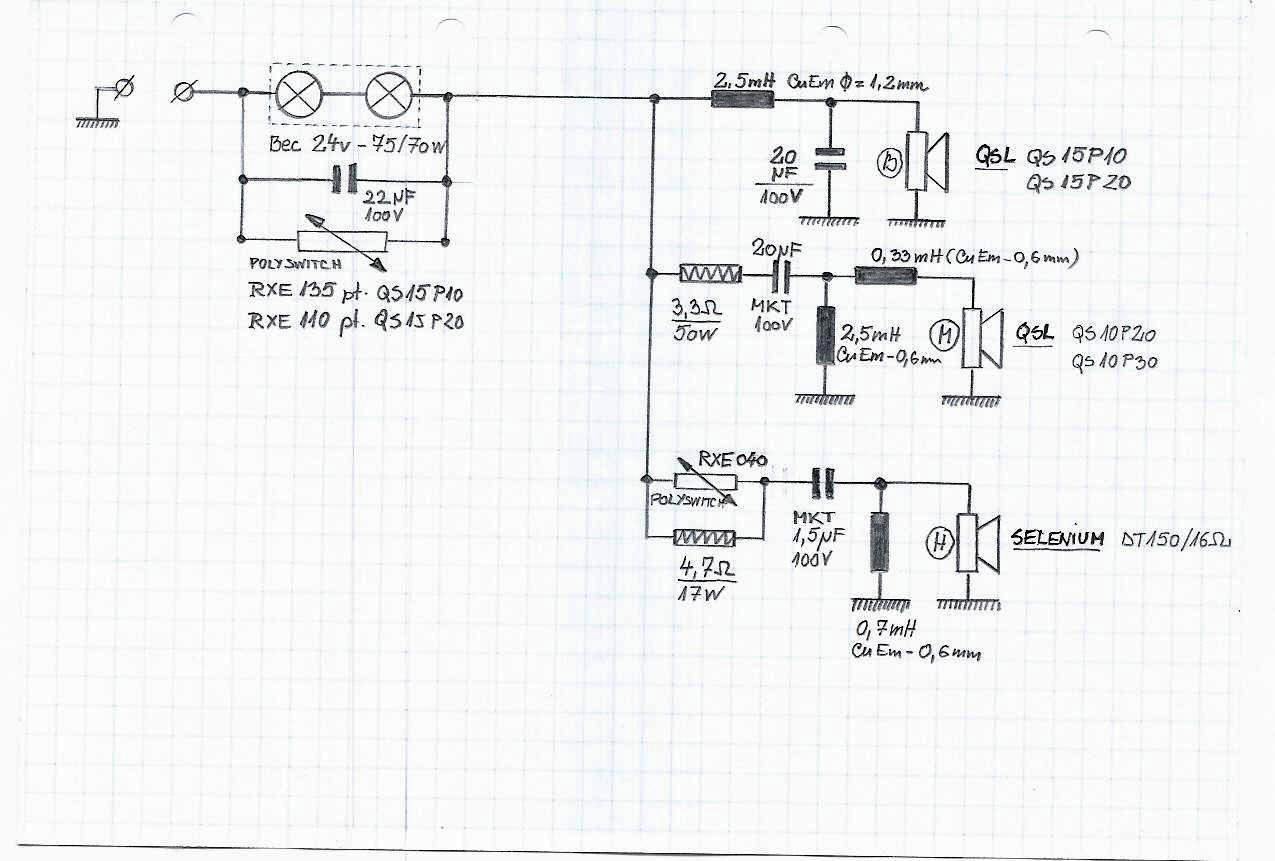 Bec 24v - 75/70W
22µF
100V
POLYSWITCH
RXE 135 pt. QS15P10
RXE 110 pt. QS15P20
2,5mH CuEm Φ=1,2mm
20
µF
100V
B
QSL QS 15P10
QS 15P20
3,3Ω
50W
20µF
MKT
100V
0,33mH (CuEm-0,6mm)
2,5mH
CuEm-0,6mm
M
QSL QS10P20
QS10P30
RXE 040
POLYSWITCH
4,7Ω
17W
MKT
1,5µF
100V
0,7mH
CuEm-0,6mm
H
SELENIUM DT150/16Ω